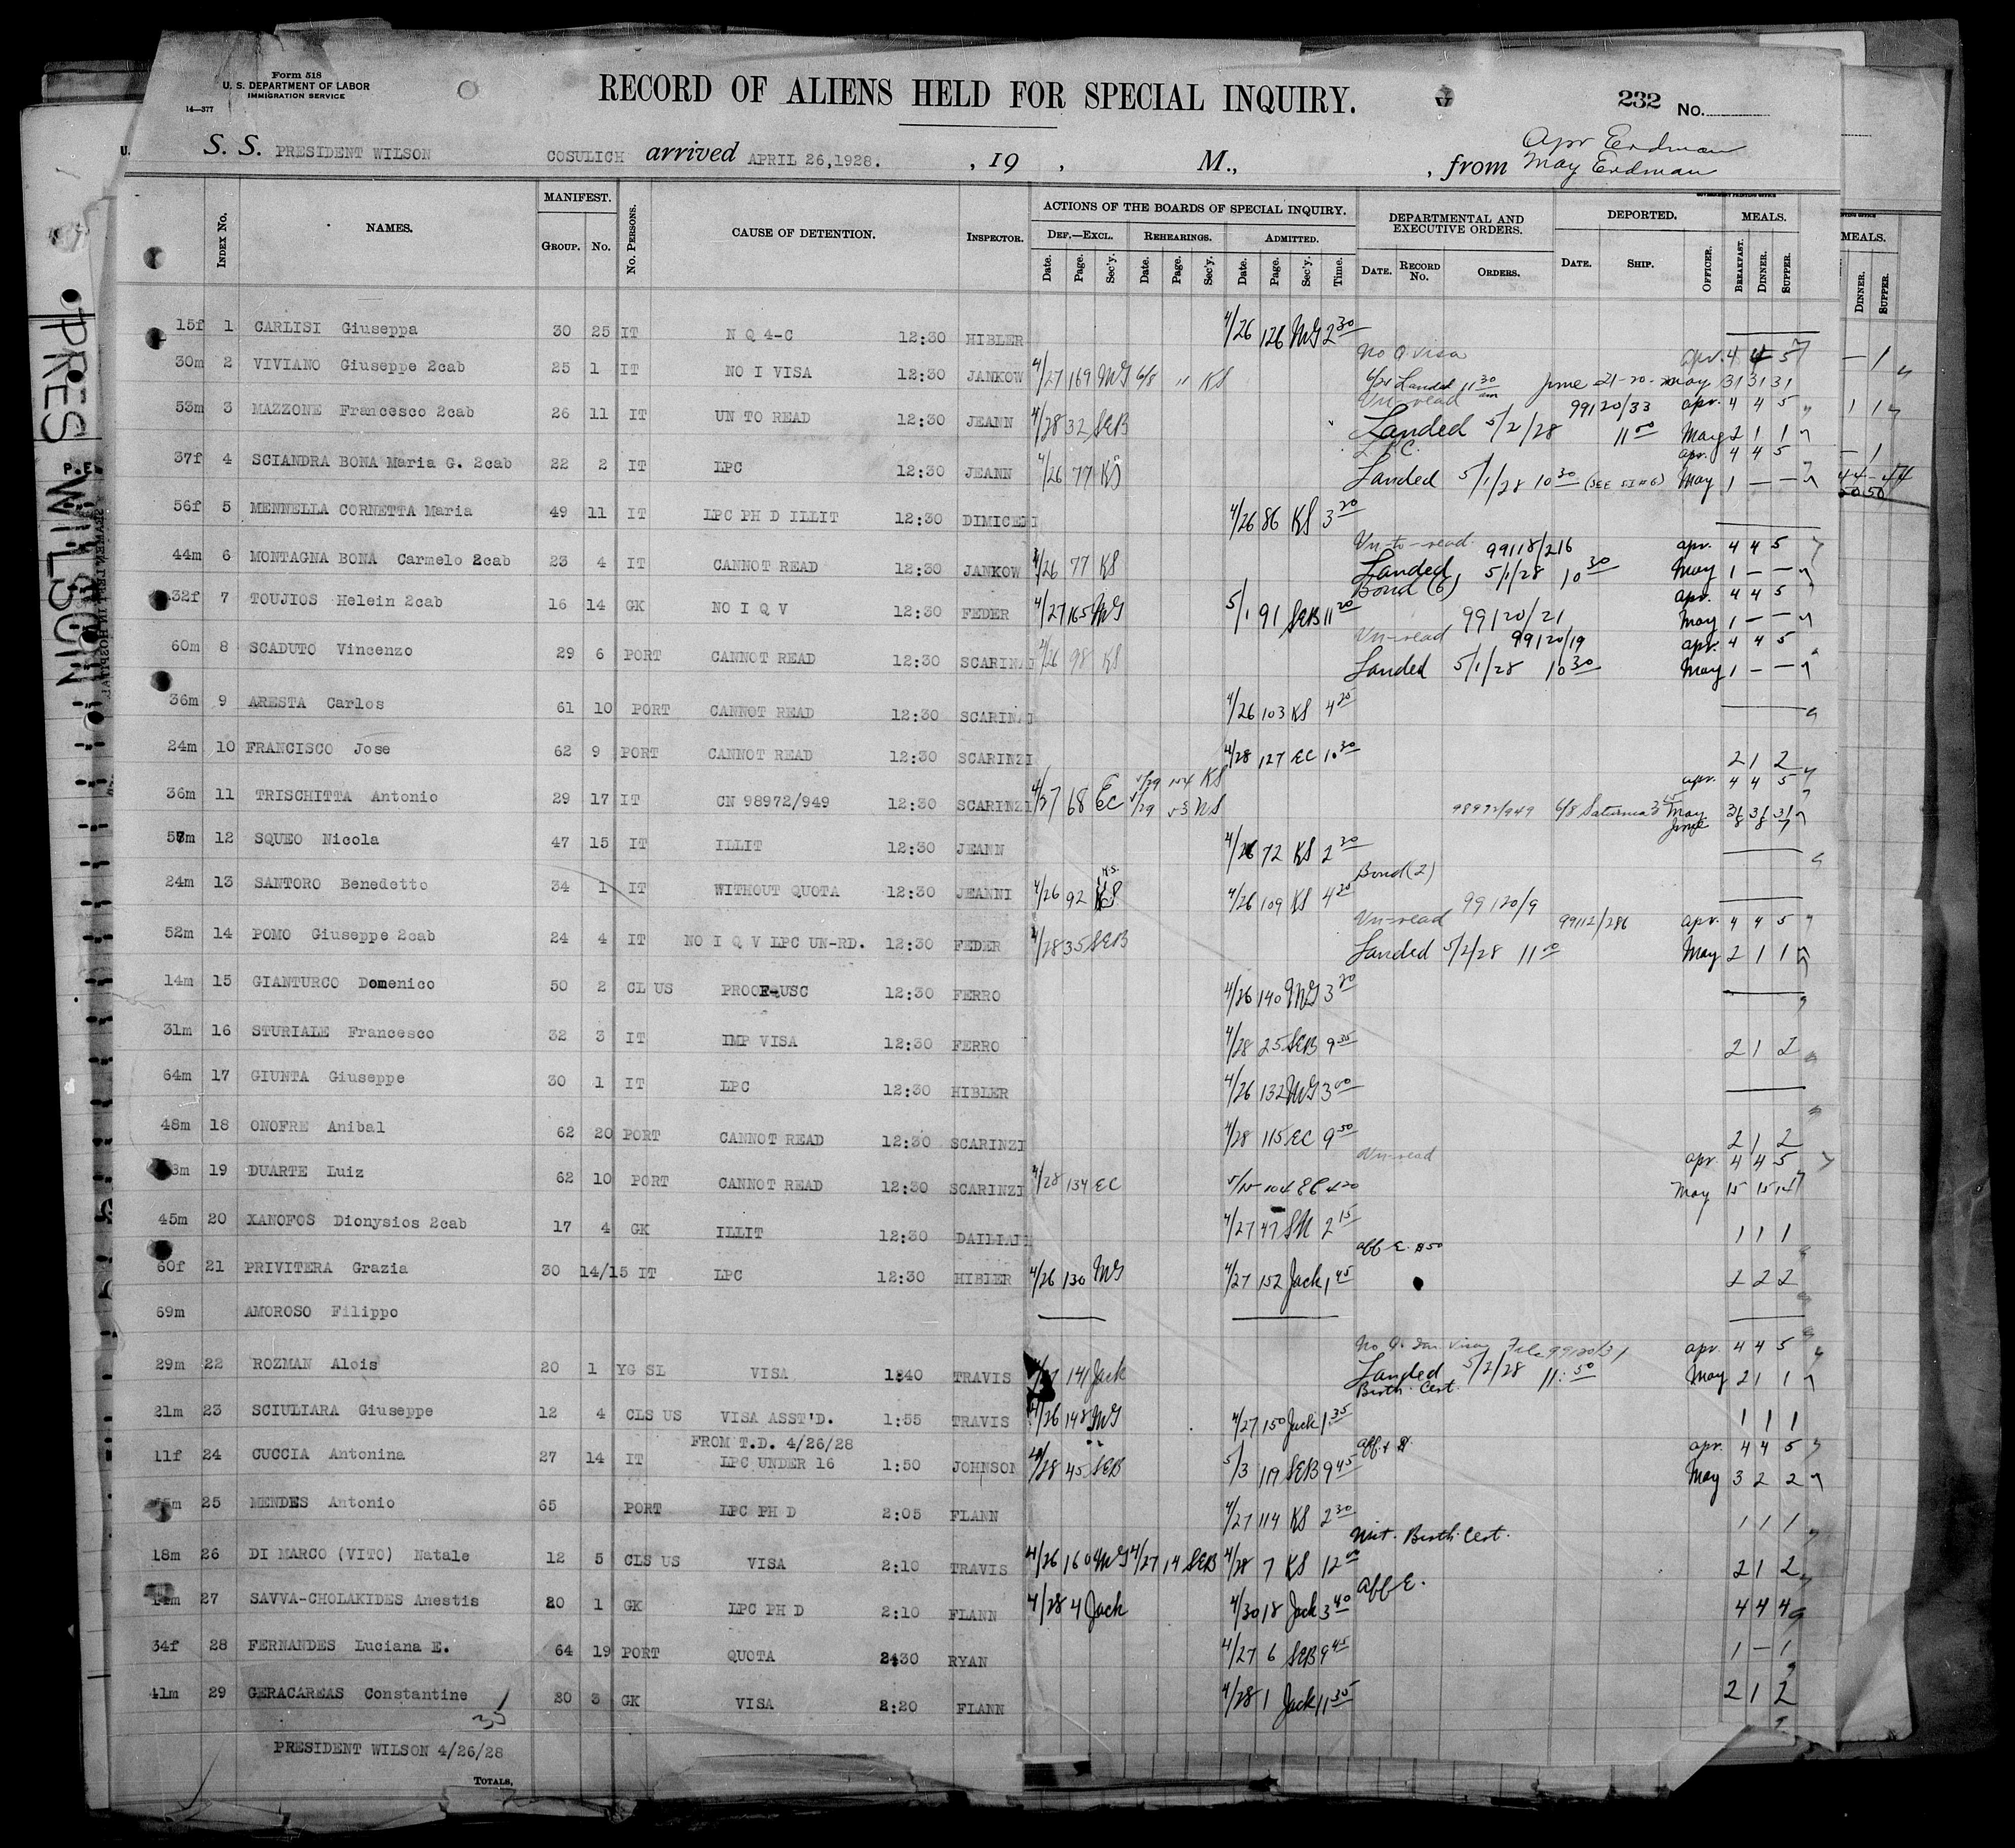 Form 518
U. S. DEPARTMENT OF LABOR
IMMIGRATION SERVICE
14—377
RECORD OF ALIENS HELD FOR SPECIAL INQUIRY.
232 No.
S. S. PRESIDENT WILSON COSULICH arrived APRIL 26,1928. , 19 , M., , from Apr Erdman
May Erdman
INDEX No. NAMES. MANIFEST. GROUP. No. No. PERSONS. CAUSE OF DETENTION. INSPECTOR. ACTIONS OF THE BOARDS OF SPECIAL INQUIRY. DEPARTMENTAL AND EXECUTIVE ORDERS. DEPORTED. MEALS.
DEF.—EXCL. REHEARINGS. ADMITTED.
Date. Page. Sec'y. Date. Page. Sec'y. Date. Page. Sec'y. Time. DATE. RECORD No. ORDERS. DATE. SHIP. OFFICER. BREAKFAST. DINNER. SUPPER.
MEALS. DINNER. SUPPER.
15f 1 CARLISI Giuseppa 30 25 IT N Q 4-C 12:30 HIBLER 4/26 126 MG 2 30
No Q visa apr. 4 4 5
30m 2 VIVIANO Giuseppe 2cab 25 1 IT NO I VISA 12:30 JANKOW 4/27 169 MG 6/8 " KS Landed 11 30 am June May 31 31 31
Un-read 99120/33 apr. 4 4 5
53m 3 MAZZONE Francesco 2cab 26 11 IT UN TO READ 12:30 JEANN 4/28 32 SEB Landed 5/2/28 11 00 May 2 1 1
L.P.C. apr. 4 4 5
37f 4 SCIANDRA BONA Maria G. 2cab 22 2 IT LPC 12:30 JEANN 4/26 77 KS Landed 5/1/28 10 30 (SEE SI#6) May 1 — —
56f 5 MENNELLA CORNETTA Maria 49 11 IT LPC PH D ILLIT 12:30 DIMICELI 4/26 86 KS 3 20
Un-to-read 99118/216 apr. 4 4 5
44m 6 MONTAGNA BONA Carmelo 2cab 23 4 IT CANNOT READ 12:30 JANKOW 4/26 77 KS Landed 5/1/28 10 30 May 1 — —
Bond (6) apr. 4 4 5
32f 7 TOUJIOS Helein 2cab 16 14 GK NO I Q V 12:30 FEDER 4/27 165 MG 5/1 91 SEB 11 20 99120/21 May 1 — —
Un-read 99120/19 apr. 4 4 5
60m 8 SCADUTO Vincenzo 29 6 PORT CANNOT READ 12:30 SCARINZI 4/26 98 KS Landed 5/1/28 10 30 May 1 — —
36m 9 ARESTA Carlos 61 10 PORT CANNOT READ 12:30 SCARINZI 4/26 103 KS 4 25
24m 10 FRANCISCO Jose 62 9 PORT CANNOT READ 12:30 SCARINZI 4/28 127 EC 10 30 2 1 2
apr. 4 4 5
36m 11 TRISCHITTA Antonio 29 17 IT CN 98972/949 12:30 SCARINZI 4/27 68 EC 98972/949 6/8 Saturnia May 31 31 31
June 8 8 7
57m 12 SQUEO Nicola 47 15 IT ILLIT 12:30 JEANN 4/26 72 KS 2 30
Bond (2)
24m 13 SANTORO Benedetto 34 1 IT WITHOUT QUOTA 12:30 JEANNI 4/26 92 KS 4/26 109 KS 4 20 99120/9
Un-read 99112/286 apr. 4 4 5
52m 14 POMO Giuseppe 2cab 24 4 IT NO I Q V LPC UN-RD. 12:30 FEDER 4/28 35 SEB Landed 5/2/28 11 00 May 2 1 1
14m 15 GIANTURCO Domenico 50 2 CL US PROOF-USC 12:30 FERRO 4/26 140 MG 3 20
31m 16 STURIALE Francesco 32 3 IT IMP VISA 12:30 FERRO 4/28 25 SEB 9 35 2 1 2
64m 17 GIUNTA Giuseppe 30 1 IT LPC 12:30 HIBLER 4/26 132 MG 3 00
48m 18 ONOFRE Anibal 62 20 PORT CANNOT READ 12:30 SCARINZI 4/28 115 EC 9 50 2 1 2
Un-read apr. 4 4 5
19 DUARTE Luiz 62 10 PORT CANNOT READ 12:30 SCARINZI 4/28 134 EC 5/15 104 EC 4 20 May 15 15 14
45m 20 XANOFOS Dionysios 2cab 17 4 GK ILLIT 12:30 4/27 47 2 15 1 1 1
aff E. $50
60f 21 PRIVITERA Grazia 30 14/15 IT LPC 12:30 HIBLER 4/26 130 MG 4/27 152 Jack 1 45 2 2 2
69m AMOROSO Filippo
No Q. Im. visa File 99120/31 apr. 4 4 5
29m 22 ROZMAN Alois 20 1 YG SL VISA 1:40 TRAVIS 4/27 141 Jack Landed 5/2/28 11:50 May 2 1 1
Birth. Cert.
21m 23 SCIULIARA Giuseppe 12 4 CLS US VISA ASST'D. 1:55 TRAVIS 4/26 148 MG 4/27 150 Jack 1 35 1 1 1
FROM T.D. 4/26/28 apr. 4 4 5
11f 24 CUCCIA Antonina 27 14 IT LPC UNDER 16 1:50 JOHNSON 4/28 45 SEB 5/3 119 SEB 9 45 May 3 2 2
25 MENDES Antonio 65 PORT LPC PH D 2:05 FLANN 4/27 114 KS 2 30 1 1 1
Birth. Cert.
18m 26 DI MARCO (VITO) Natale 12 5 CLS US VISA 2:10 TRAVIS 4/26 160 MG 4/27 14 SEB 4/28 7 KS 12 00 2 1 2
aff E.
27 SAVVA-CHOLAKIDES Anestis 20 1 GK LPC PH D 2:10 FLANN 4/28 4 Jack 4/30 18 Jack 3 40 4 4 4
34f 28 FERNANDES Luciana E. 64 19 PORT QUOTA 2:30 RYAN 4/27 6 SEB 9 45 1 — 1
41m 29 GERACAREAS Constantine 20 3 GK VISA 2:20 FLANN 4/28 1 Jack 11 35 2 1 2
PRESIDENT WILSON 4/26/28
TOTALS,
PRES WILSON